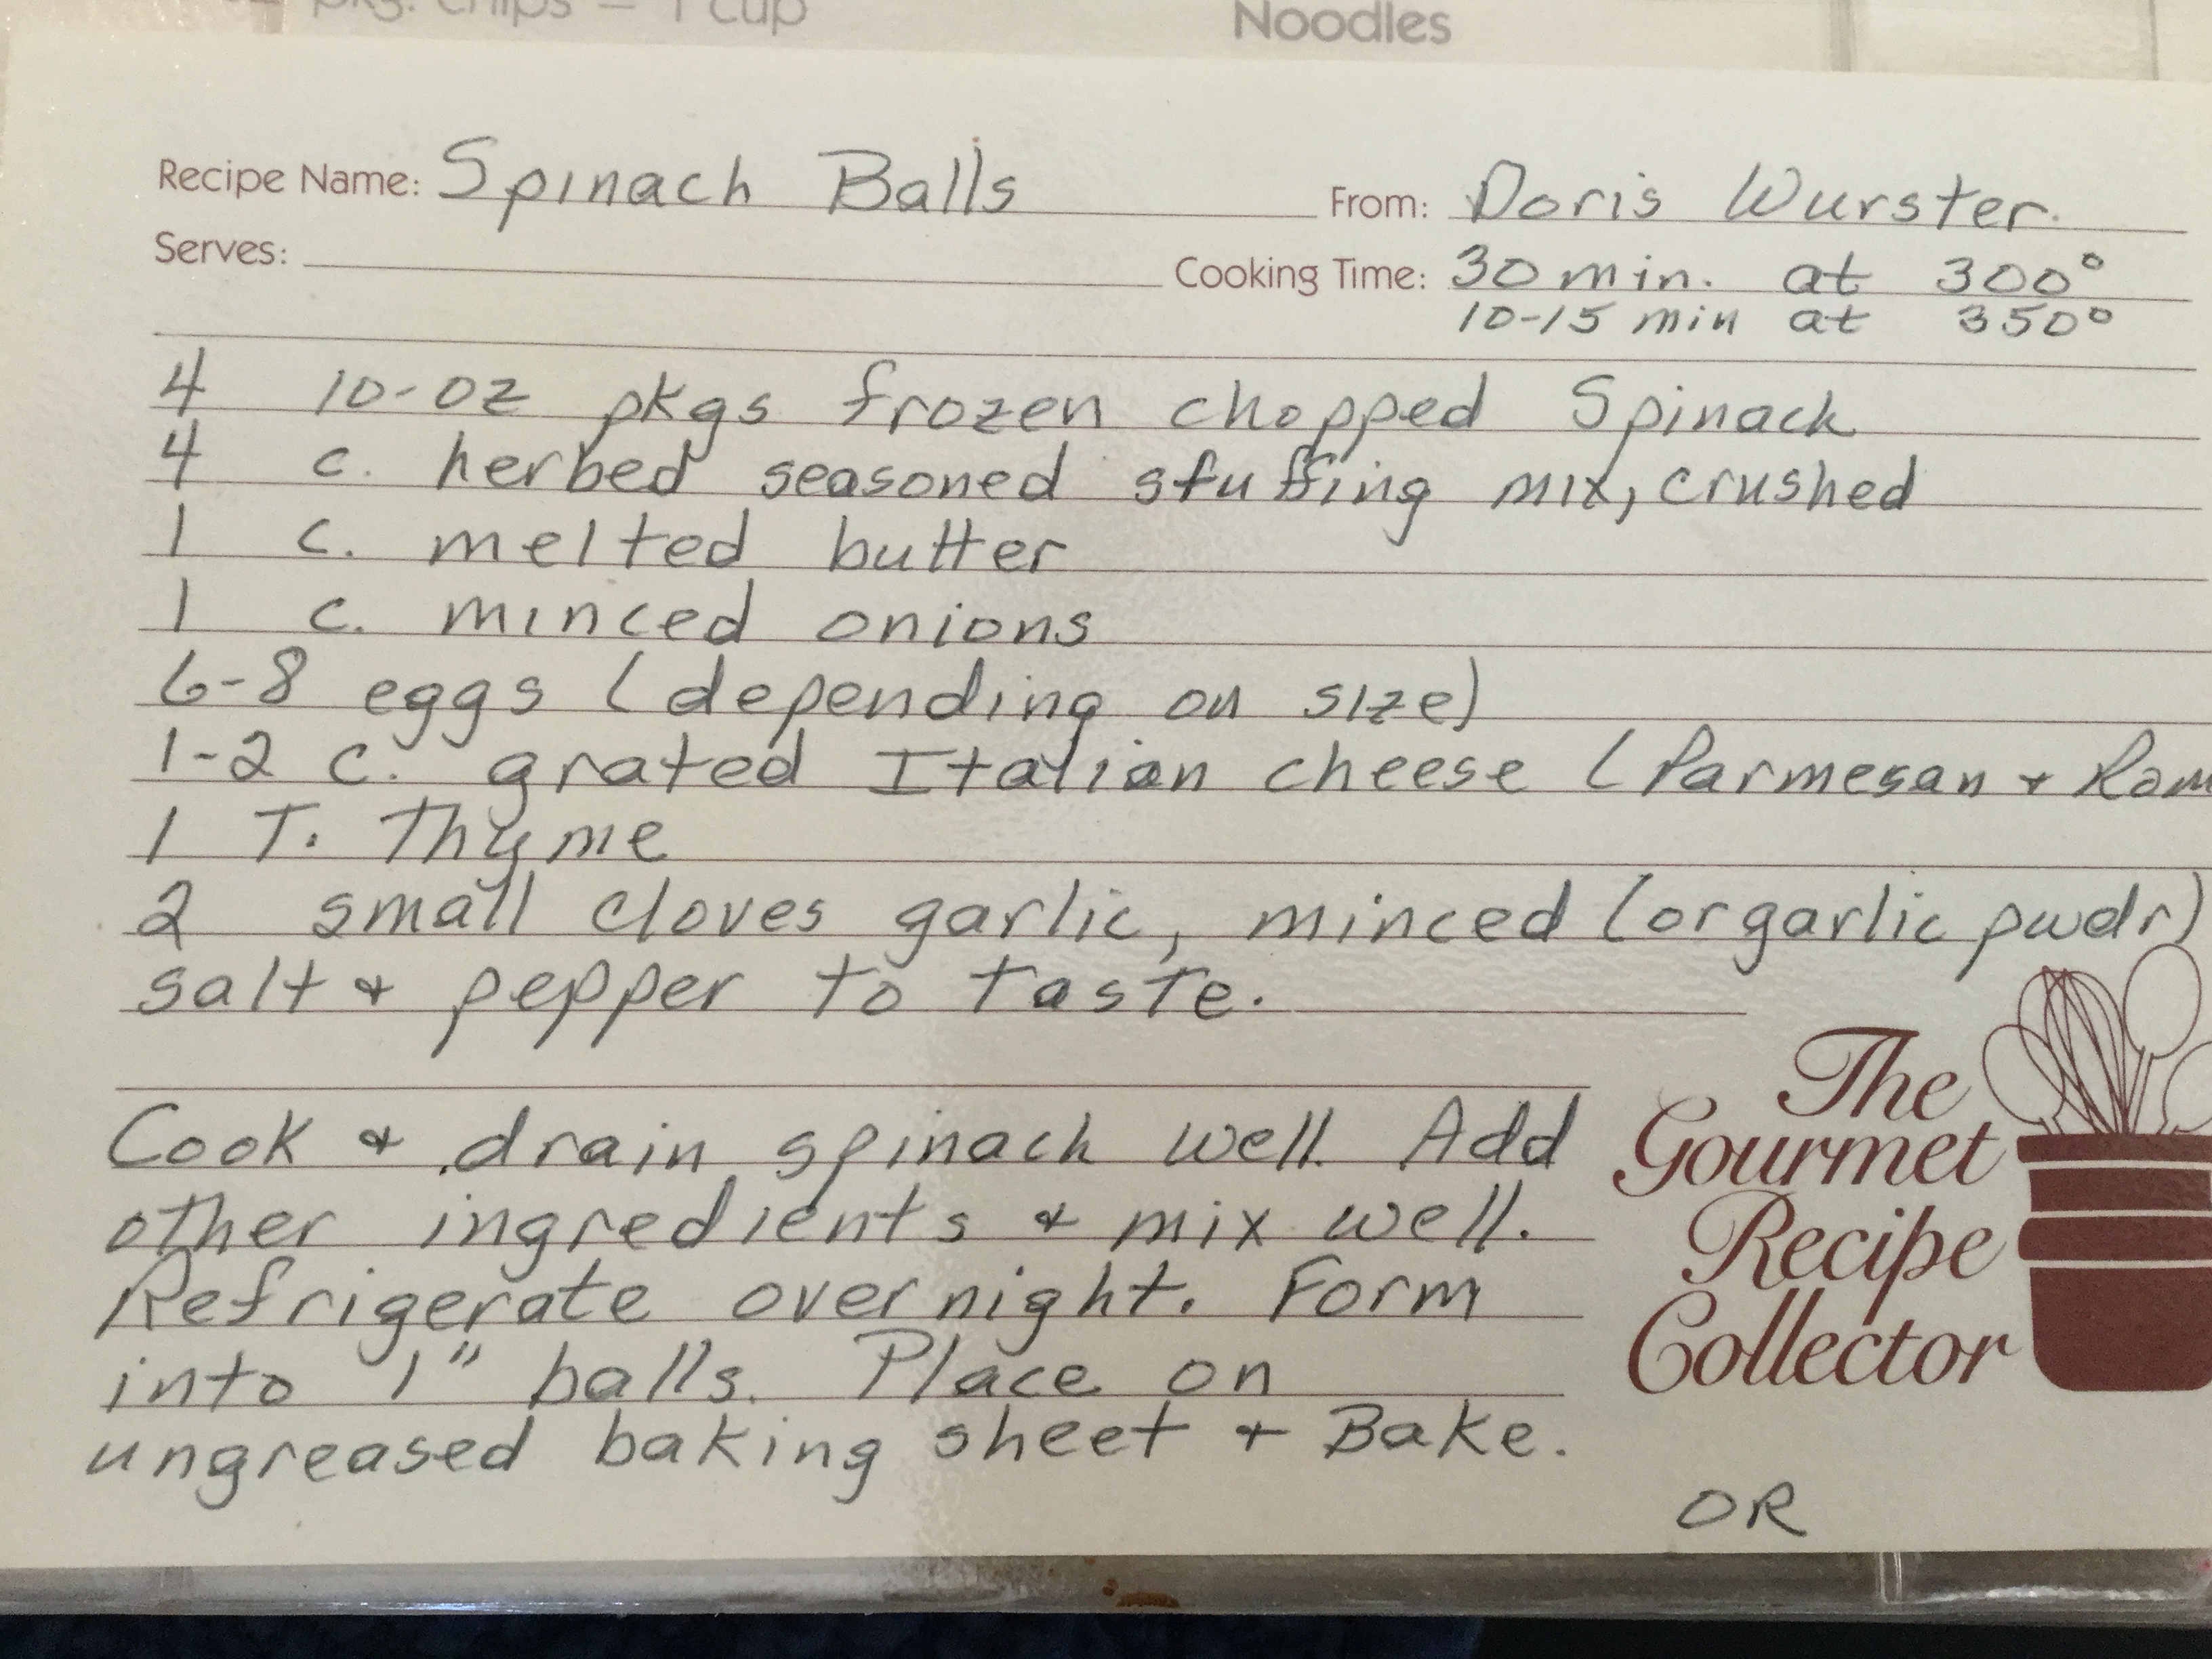 pkg. chips = 1 cup
Noodles
Recipe Name: Spinach Balls From: Doris Wurster.
Serves: Cooking Time: 30 min. at 300°
10-15 min at 350°
4 10-oz pkgs frozen chopped Spinack
4 c. herbed seasoned stuffing mix, crushed
1 c. melted butter
1 c. minced onions
6-8 eggs (depending on size)
1-2 c. grated Italian cheese (Parmesan + Rom
1 T. Thyme
2 small cloves garlic, minced (or garlic pwdr)
salt + pepper to taste.
Cook + drain spinach well. Add
other ingredients + mix well.
Refrigerate overnight. Form
into 1" balls. Place on
ungreased baking sheet + Bake.
OR
The
Gourmet
Recipe
Collector